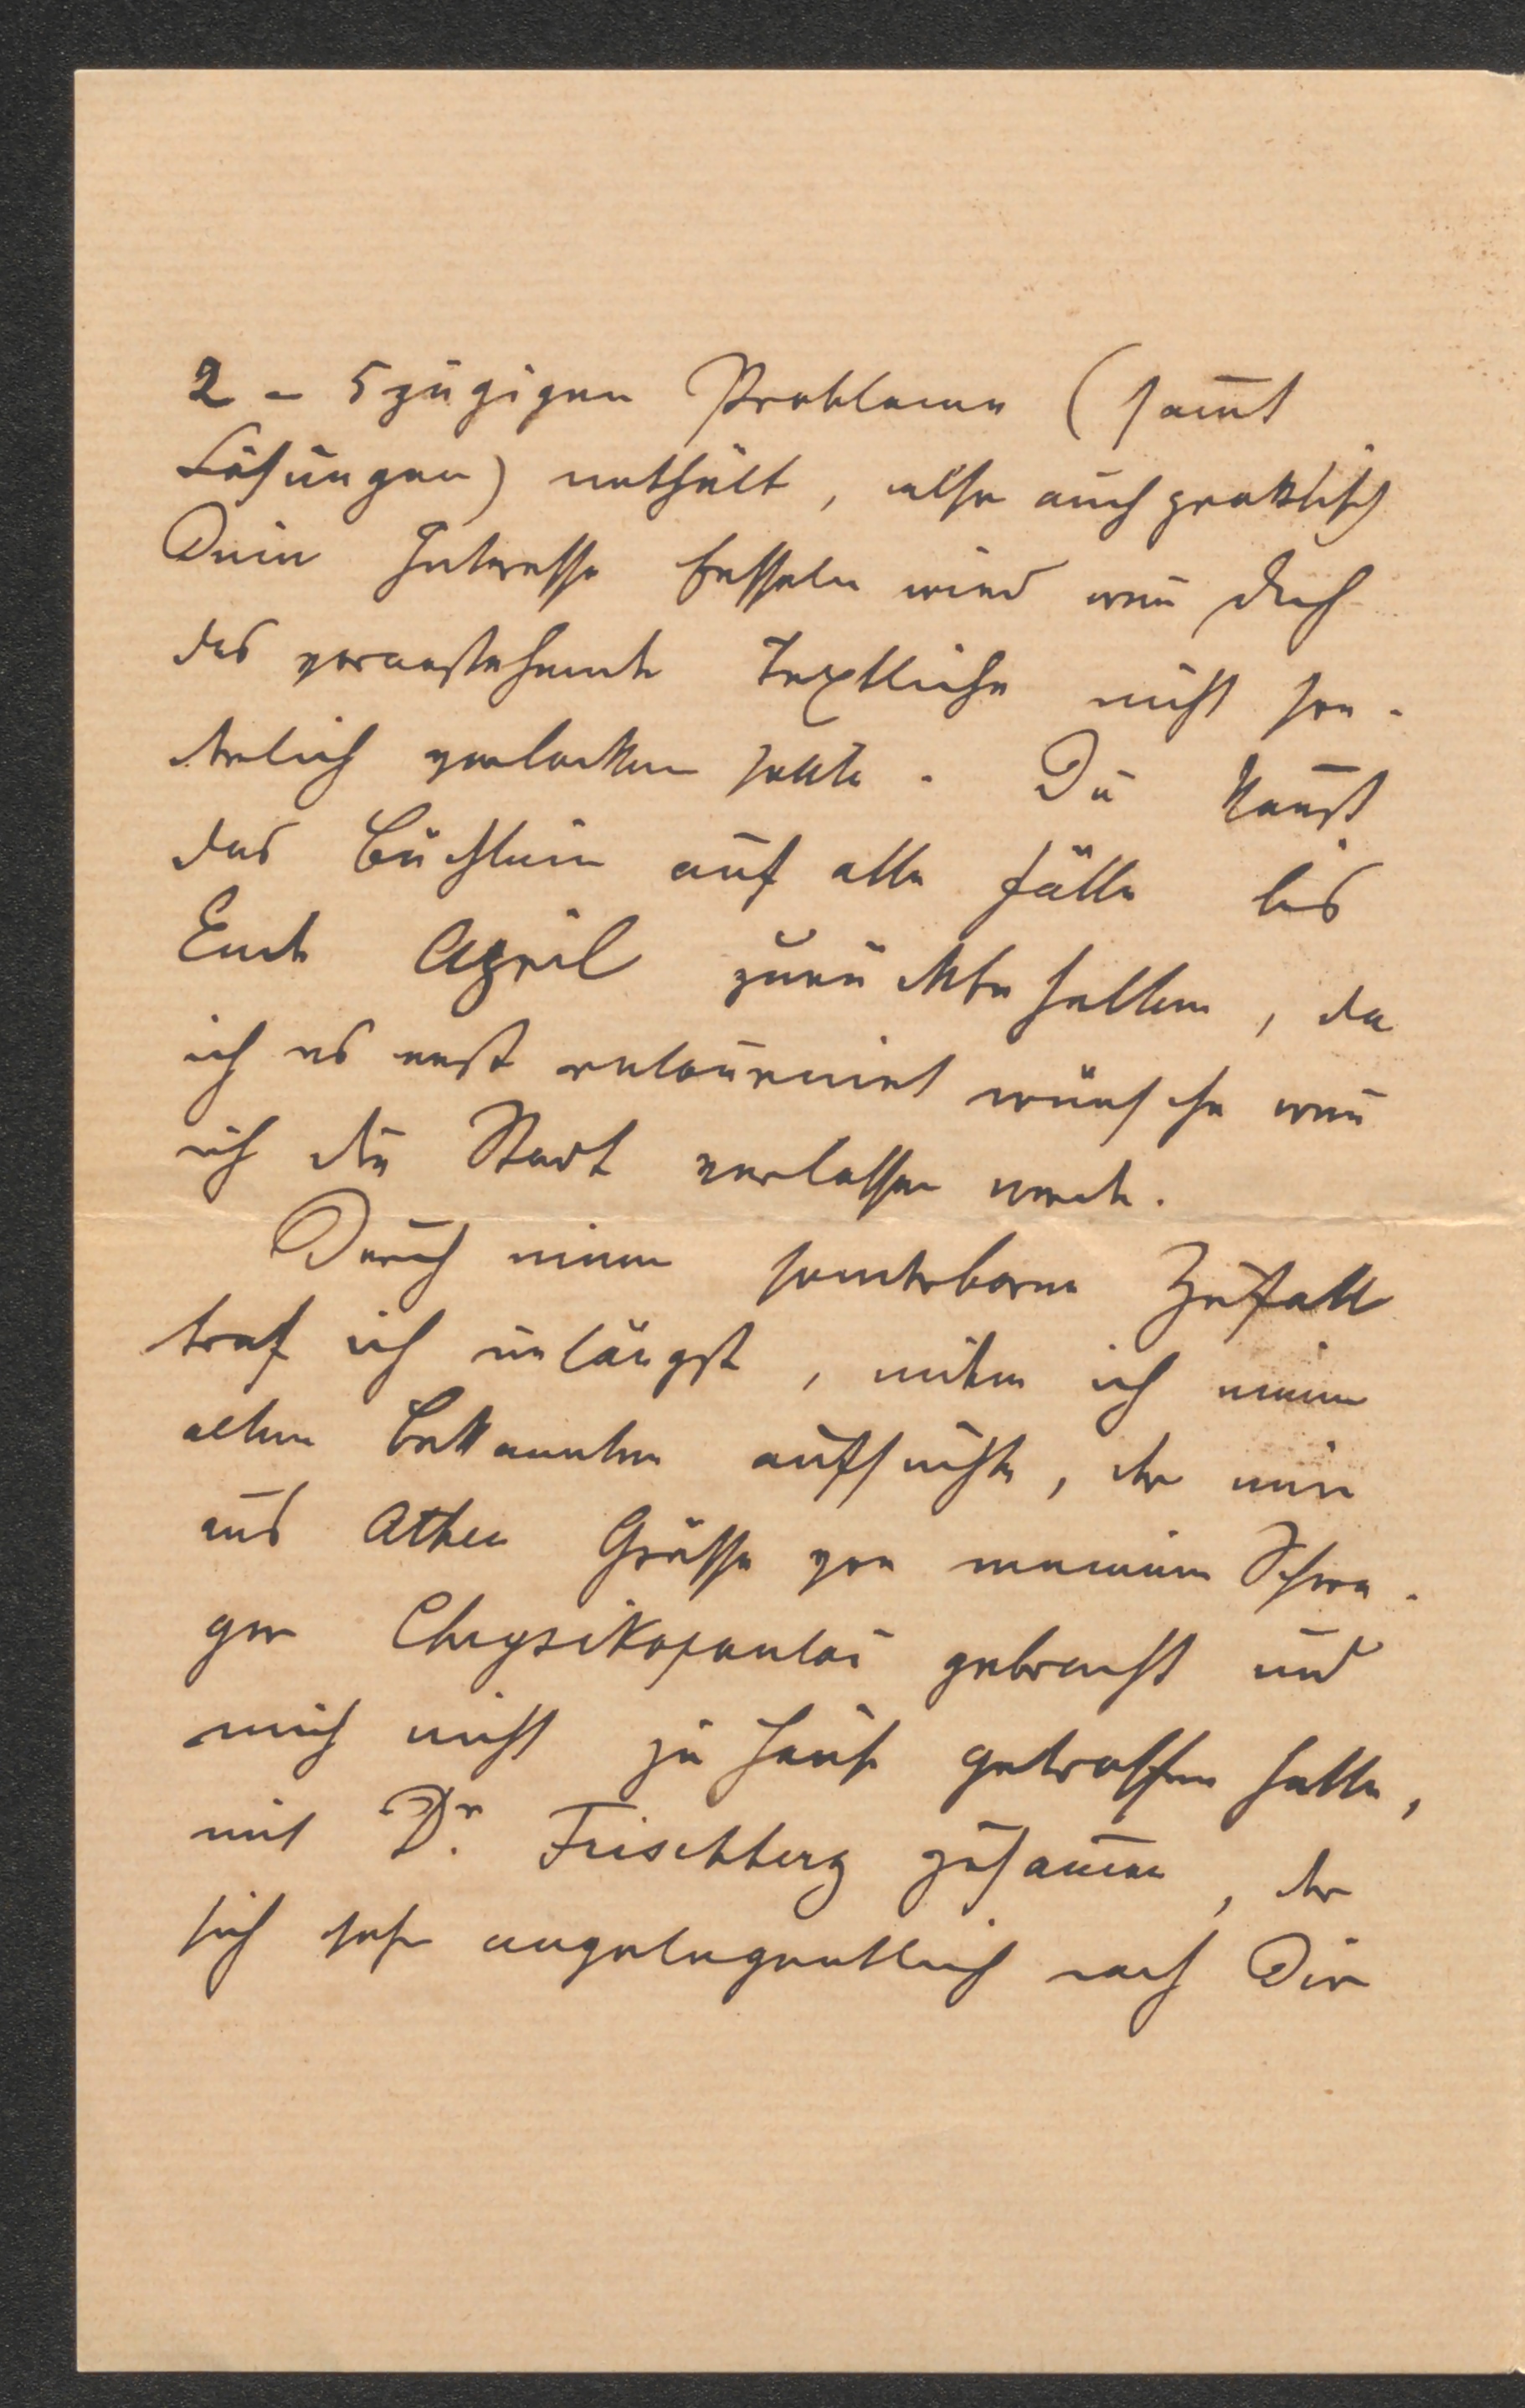 2 - 5zügigen Problemen (sam̅t
Lösungen) enthält, also auch praktisch
Dein Interesse fesseln wird wen̅ Dich
das voranstehende Textliche nicht son-
derlich verlocken sollte. Du kan̅st
das Büchlein auf alle Fälle bis
Ende April zurückbehalten, da
ich es erst retournirt wünsche wen̅
ich die Stadt verlassen werde.
Durch einen sonderbaren Zufall
traf ich unlängst, indem ich einen
alten Bekannten aufsuchte, der mir
aus Athen Grüsse von meinem Schwa-
ger Chrysikopoulos gebracht und
mich nicht zu Hause getroffen hatte,
mit Dr. Frischberg zusam̅en, der
sich sehr angelegentlich nach Dir